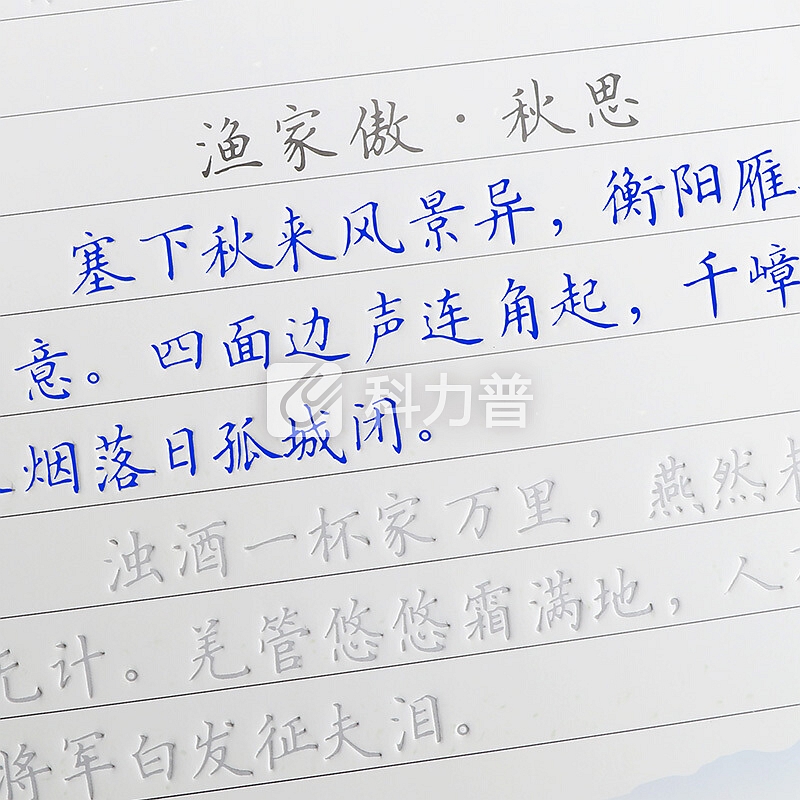 渔家傲·秋思
塞下秋来风景异，衡阳雁
意。四面边声连角起，千嶂
烟落日孤城闭。
科力普
浊酒一杯家万里，燕然
无计。羌管悠悠霜满地，人
将军白发征夫泪。